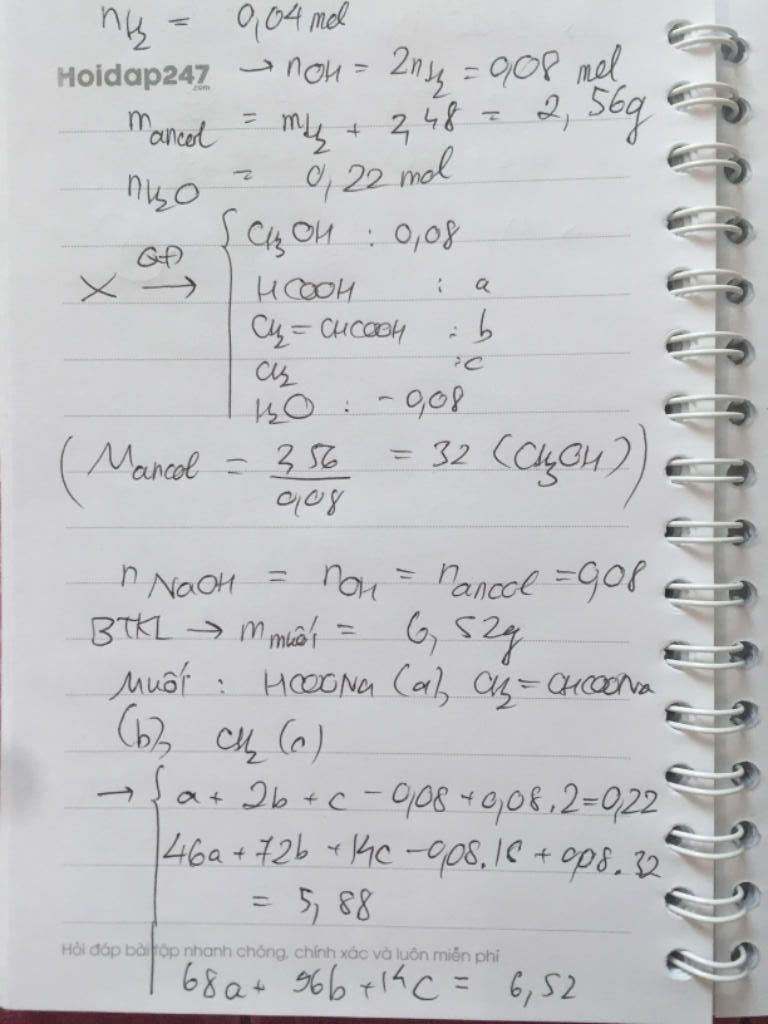 nH2 = 0,04 mol
Hoidap247
.com
→ nOH = 2nH2 = 0,08 mol
mancol = mH2 + 2,48 = 2,56g
nH2O = 0,22 mol
X QĐ → { CH3OH : 0,08
HCOOH : a
CH2=CHCOOH : b
CH2 : c
H2O : -0,08
(Mancol = 2,56 / 0,08 = 32 (CH3OH))
nNaOH = nOH = nancol = 0,08
BTKL → mmuối = 6,52g
Muối : HCOONa (a), CH2=CHCOONa
(b), CH2 (c)
→ { a + 2b + c - 0,08 + 0,08.2=0,22
46a + 72b + 14c - 0,08.18 + 0,08.32
= 5,88
Hỏi đáp bài tập nhanh chóng, chính xác và luôn miễn phí
68a + 96b + 14c = 6,52